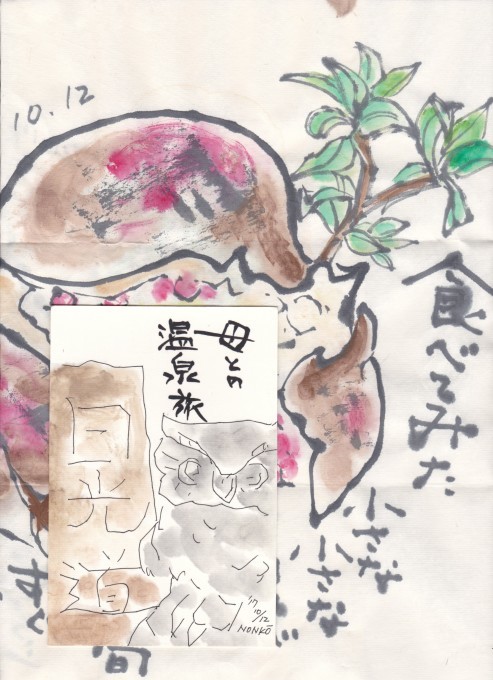 10.12
食べてみた
小さな
小さな
旬
母との
温泉旅
日光
道
'17
10/12
NONKO